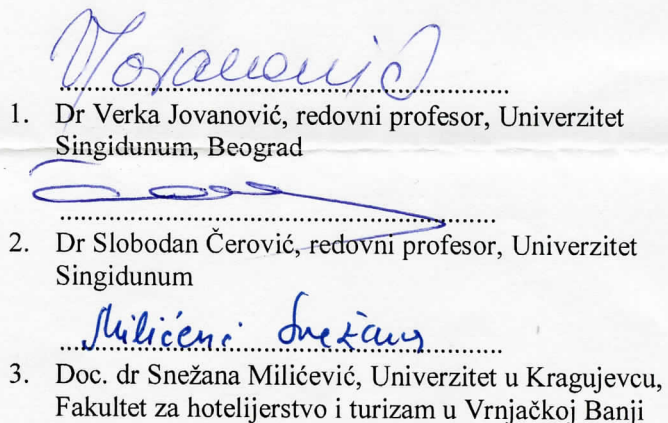 VJovanović
1. Dr Verka Jovanović, redovni profesor, Univerzitet
Singidunum, Beograd
2. Dr Slobodan Čerović, redovni profesor, Univerzitet
Singidunum
Milićević Snežana
3. Doc. dr Snežana Milićević, Univerzitet u Kragujevcu,
Fakultet za hotelijerstvo i turizam u Vrnjačkoj Banji